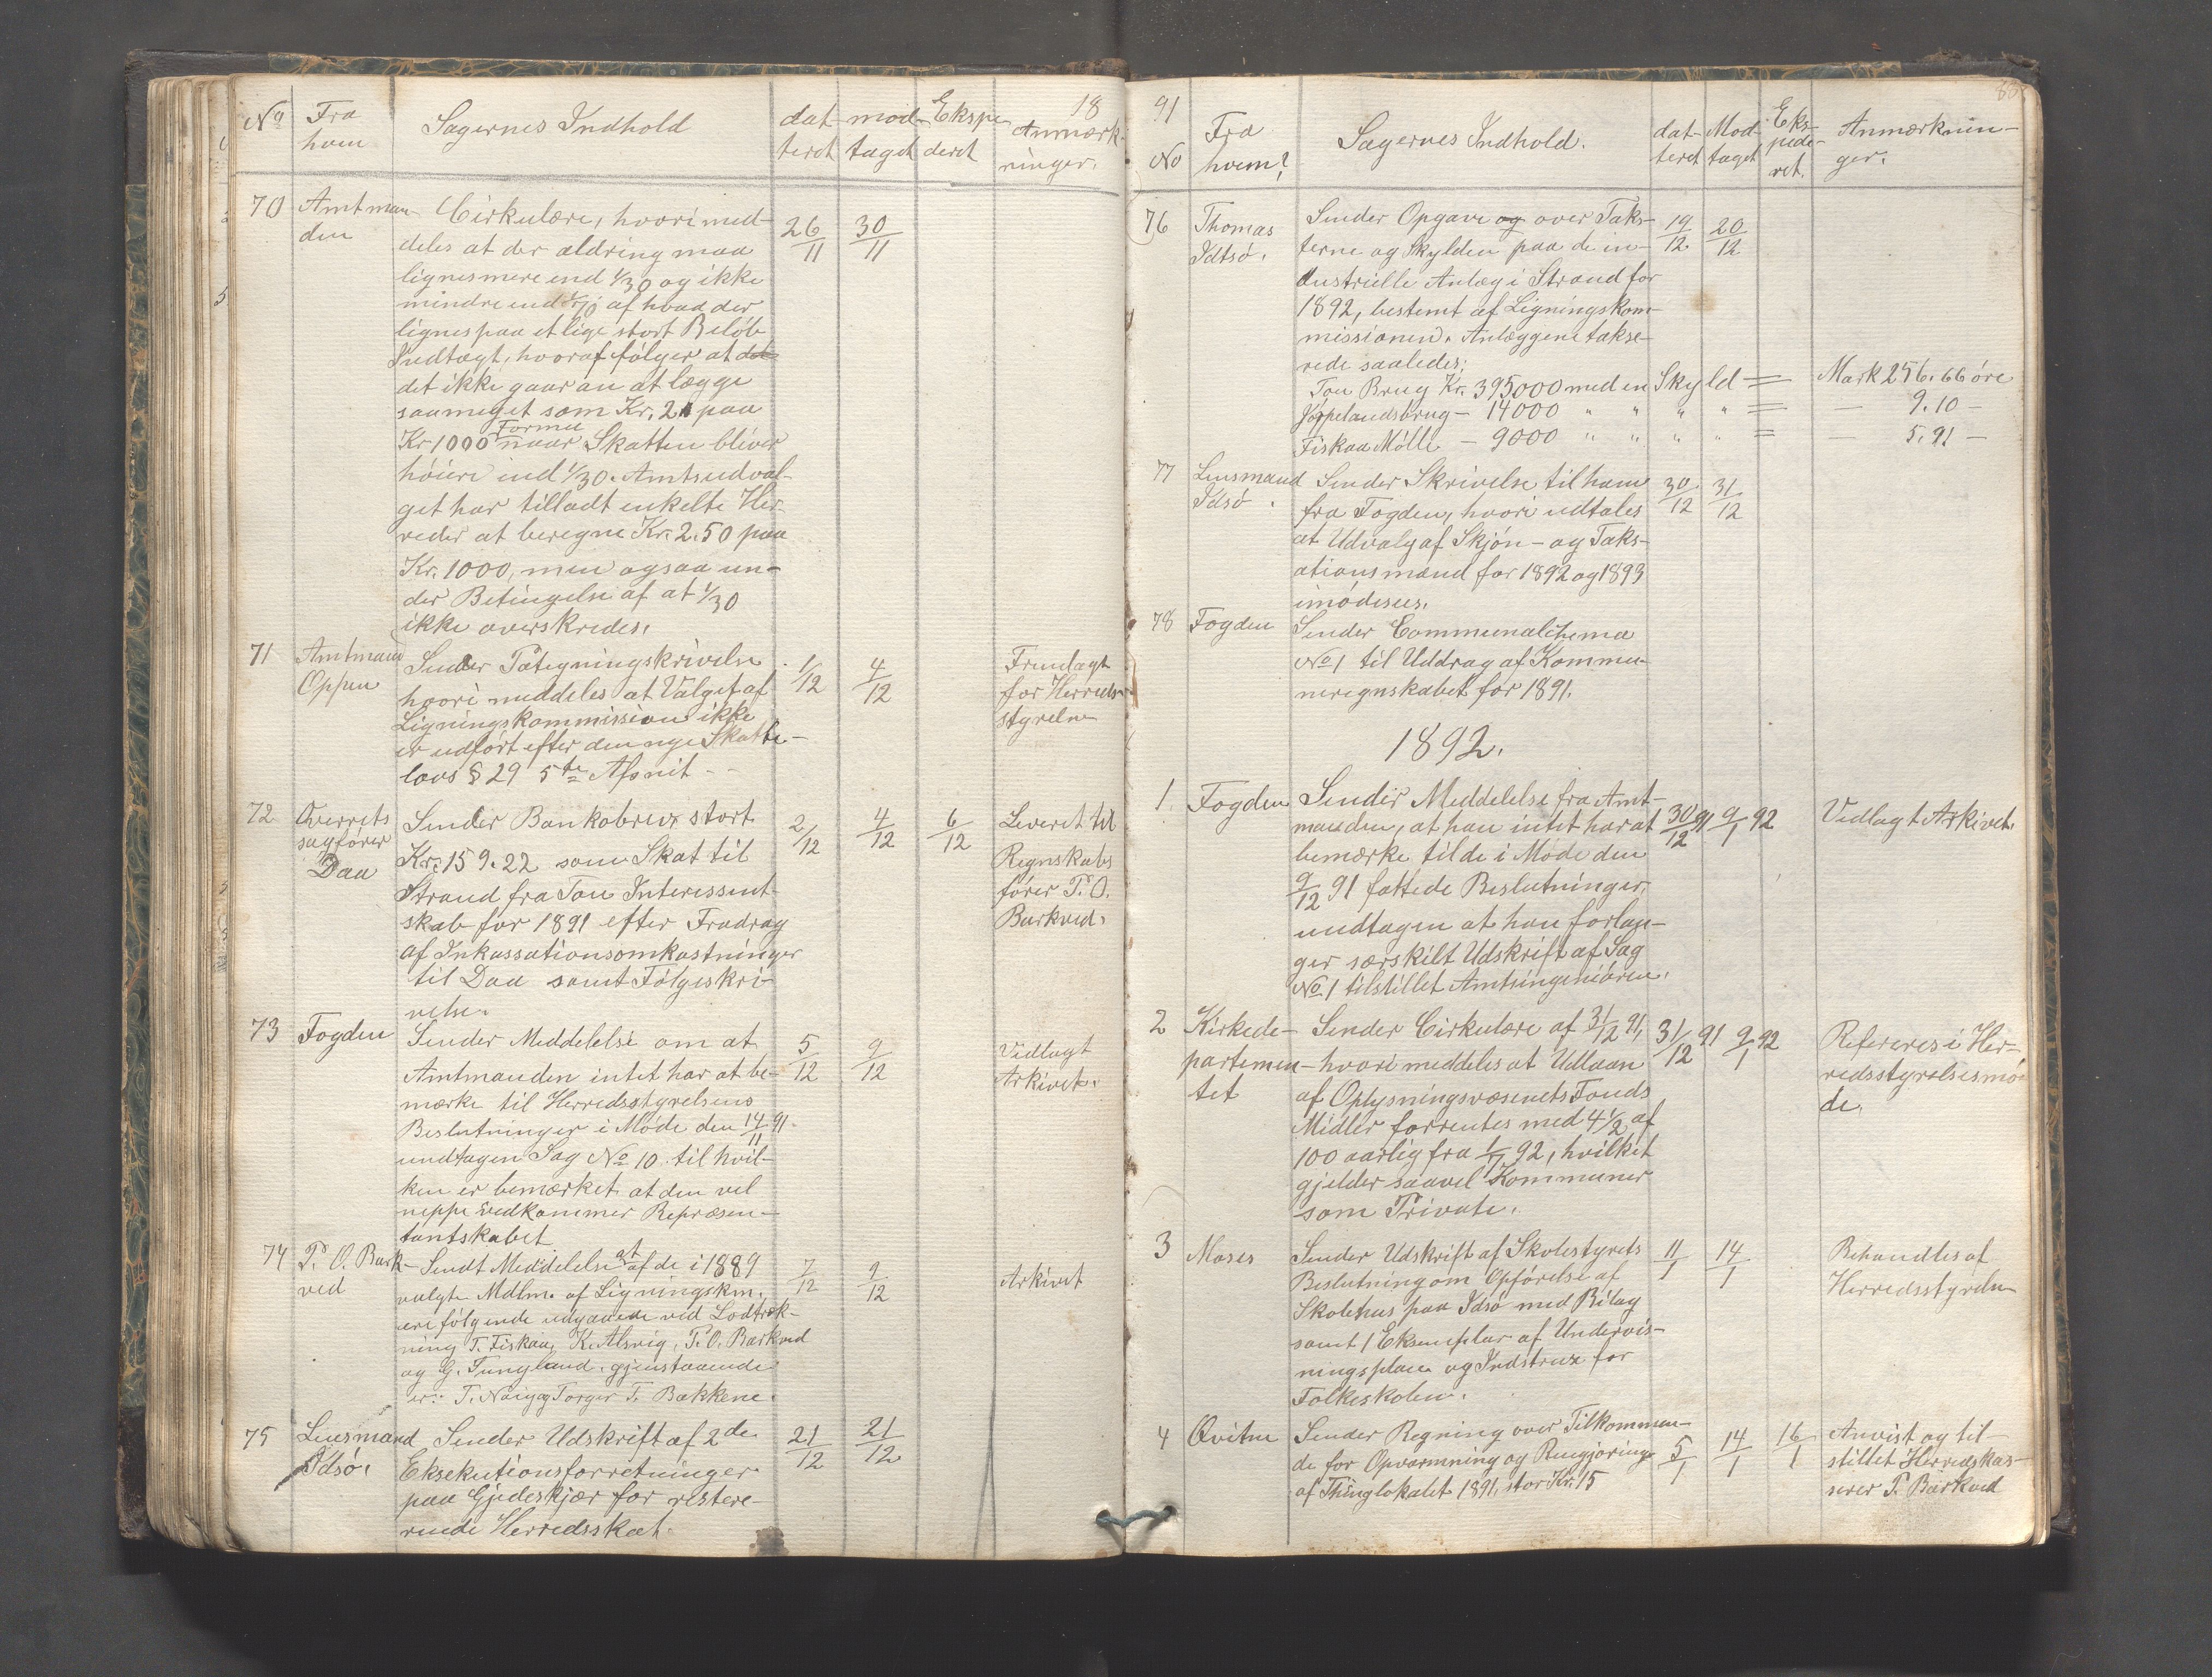 18
No
Fra
hvem
Sagernes Indhold
dat-
teret
mod-
taget
Ekspe
deret
Anmærk-
ninger.
70
Amtman-
den
Cirkulære, hvori med-
deles at der aldring maa
lignes mere end 1/30 og ikke
mindre end af hvad der
lignes paa et lige stort Beløb
Indtægt, hvoraf følger at det
det ikke gaar an at lægge
saameget som Kr. 2 paa
Formue
Kr 1000 naar Skatten bliver
høiere end 1/30. Amtsudval-
get har tilladt enkelte Her-
reder at beregne Kr. 2.50 paa
Kr. 1000, men ogsaa un-
der Betingelse af at 1/30
ikke overskredes.
26/11
30/11
71
Amtmand
Oppen
Sender Pategningskrivelse
hvori meddeles at Valget af
Ligningskommission ikke
er udført efter den nye Skatte-
lovs § 29 5te Afsnit -
1/12
4/12
Fremlagt
for Herreds-
styrelsen
72
Overrets
sagfører
Daa
Sender Bankobrev stort
Kr. 159.22 som Skat til
Strand fra Tou Interessent-
skab for 1891 efter Fradrag
af Inkassationsomkostninger
til Daa samt Følgeskri-
velse.
2/12
4/12
6/12
Leveret til
Regnskabs
fører P. O.
Barkved.
73
Fogden
Sender Meddelelse om at
Amtmanden intet har at be-
mærke til Herredsstyrelsens
Beslutninger i Møde den 14/11 91.
undtagen Sag No 10. til hvil-
ken er bemærket at den vel
neppe vedkommer Repræsen-
tantskabet
5/12
9/12
Vedlagt
Arkivet.
74
P. O. Bark-
ved
Sendt Meddelelse at af de i 1889
valgte Mdlm. af Ligningskm.
ere følgende udgaaede ved Lodtræk-
ning T. Fiskaa, K. Alsvig, P. O. Barkved
og G. Tungland. gjenstaaende
er: T. Nøig og Torger T. Bækkene.
7/12
9/12
Arkivet
75
Lensmand
Idsø.
Sender Udskrift af 2de
Eksekutionsforretninger
paa Gjedeskjær for restere-
rende Herredsskat.
21/12
21/12
91
No
Fra
hvem?
Sagernes Indhold.
dat-
teret
Mod-
taget
Eks-
pede-
ret.
Anmærknin-
ger.
76
Thomas
Idtsø.
Sender Opgave og over Taks-
terne og Skylden paa de in-
dustrielle Anlæg i Strand for
1892, bestemt af Ligningskom-
missionen. Anlæggene takse-
rede saaledes:
19/12
20/12
Tou Brug Kr. 395000 med en Skyld = Mark 256.66 øre
Jøppelandsbrug - 14000 " " " " = - 9.10 -
Fiskaa Mølle - 9000 " " " " = - 5.91 -
77
Lensmand
Idsø.
Sender Skrivelse til ham
fra Fogden, hvori udtales
at Udvalg af Skjøn- og Taks-
ationsmænd for 1892 og 1893
imødesees.
30/12
31/12
78
Fogden
Sender Communalschema
No 1 til Uddrag af Kommu-
neregnskabet for 1891.
1892.
1
Fogden
Sender Meddelelse fra Amt-
manden, at han intet har at
bemærke til de i Møde den
9/12 91 fattede Beslutninger,
undtagen at han forlan-
ger særskilt Udskrift af Sag
No 1 tilstillet Amtsingeniøren.
30/12 91
9/1 92
Vedlagt Arkivet.
2
Kirkede-
partemen-
tet
Sender Cirkulære af 31/12 91,
hvori meddeles at Udlaan
af Oplysningsvæsenets Fonds
Midler forrentes med 4 1/2 af
100 aarlig fra 1/7 92, hvilket
gjelder saavel Kommuner
som Private.
31/12 91
9/1 92
Refereres i Her-
redsstyrelsesmø-
de.
3
Moses
Sender Udskrift af Skolestyrets
Beslutning om Opførelse af
Skolehus paa Idsø med Bilag
samt 1 Eksemplar af Undervis-
ningsplan og Indstrux for
Folkeskolen.
11/1
14/1
Behandles af
Herredsstyrelsen
4
Qvitne
Sender Regning over Tilkommen-
de for Opvarmning og Rengjøring
af Thinglokalet 1891, stor Kr. 15
5/1
14/1
16/1
Anvist og til-
stillet Herredskas-
serer P. Barkved